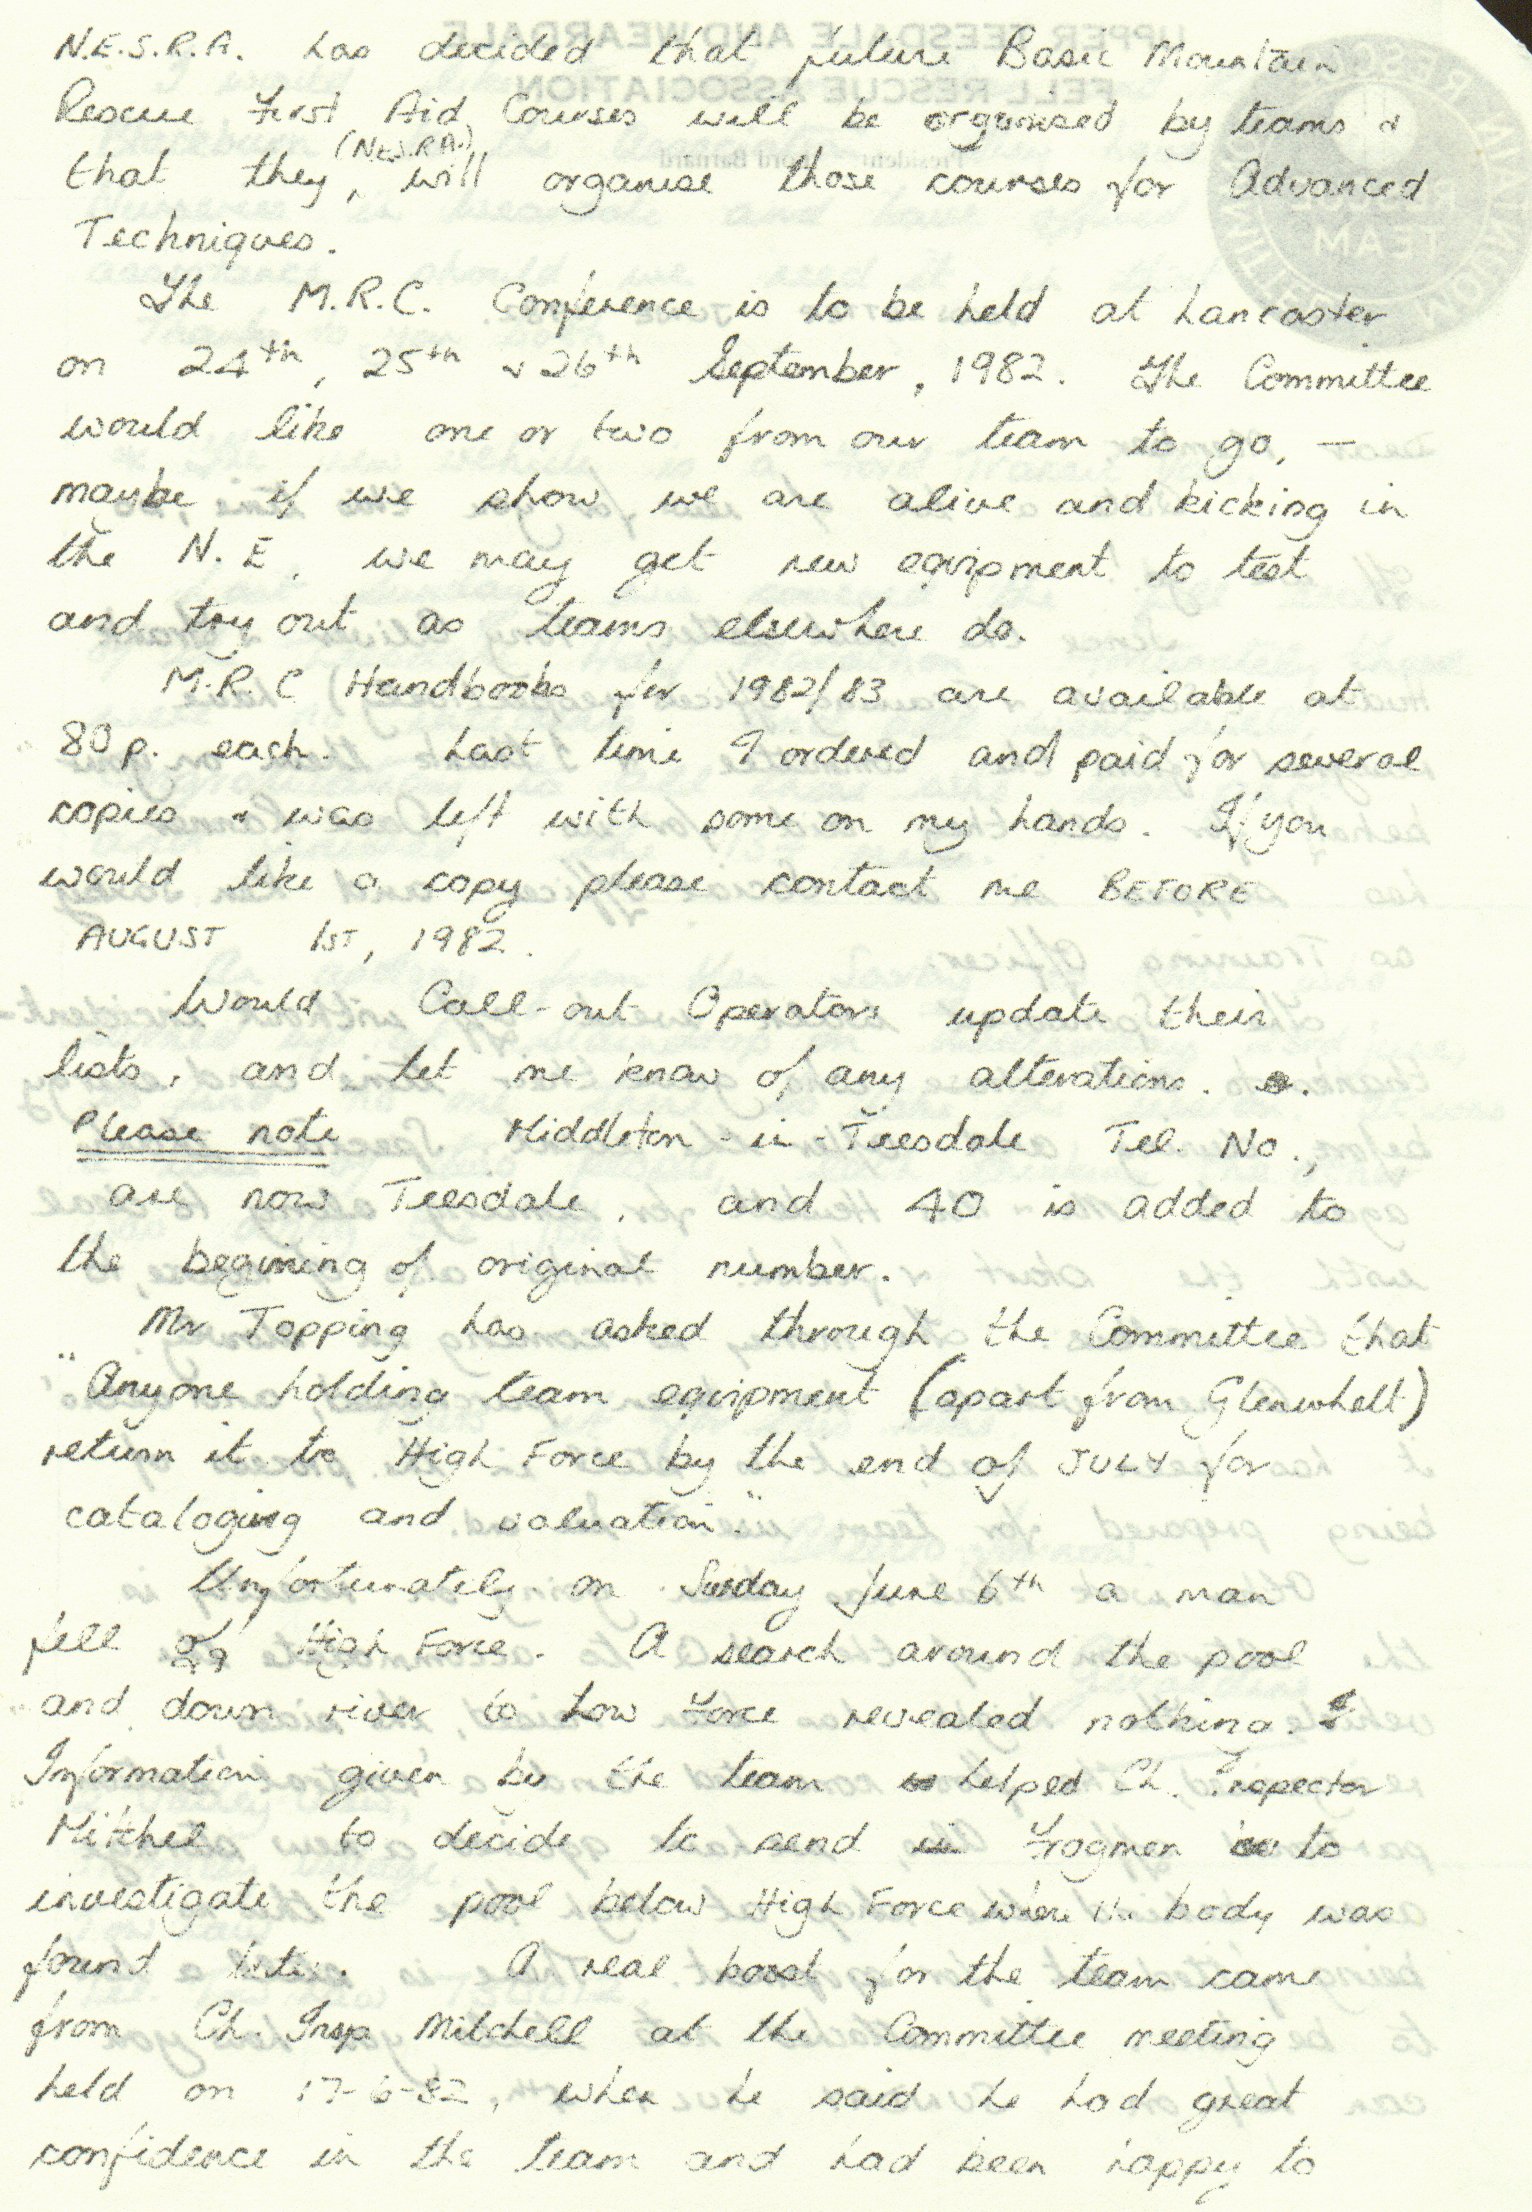 N.E.S.R.A. has decided that future Basic Mountain
Rescue First Aid Courses will be organised by teams &
(N.E.S.R.A.)
that they, will organise those courses for Advanced
Techniques.
The M.R.C. Conference is to be held at Lancaster
on 24th, 25th & 26th September, 1982. The Committee
would like one or two from our team to go, —
maybe if we show we are alive and kicking in
the N.E. we may get new equipment to test
and try out as teams elsewhere do.
M.R.C Handbooks for 1982/83 are available at
80p. each. Last time I ordered and paid for several
copies & was left with some on my hands. If you
would like a copy please contact me BEFORE
AUGUST 1ST, 1982.
Would Call-out Operators update their
lists, and let me know of any alterations.
Please note Middleton-in-Teesdale Tel. No.,
are now Teesdale, and 40 is added to
the begining of original number.
Mr Topping has asked through the Committee that
"Anyone holding team equipment (apart from Glenwhelt)
return it to High Force by the end of JULY for
cataloging and valuation."
Unfortunately on Sunday June 6th a man
fell off High Force. A search around the pool
and down river to Low Force revealed nothing.
Information given by the team helped Ch. Inspector
Mitchel to decide to send Frogmen to
investigate the pool below High Force where the body was
found later. A real boost for the team came
from Ch. Insp Mitchell at the Committee meeting
held on 17-6-82, when he said he had great
confidence in the team and had been happy to